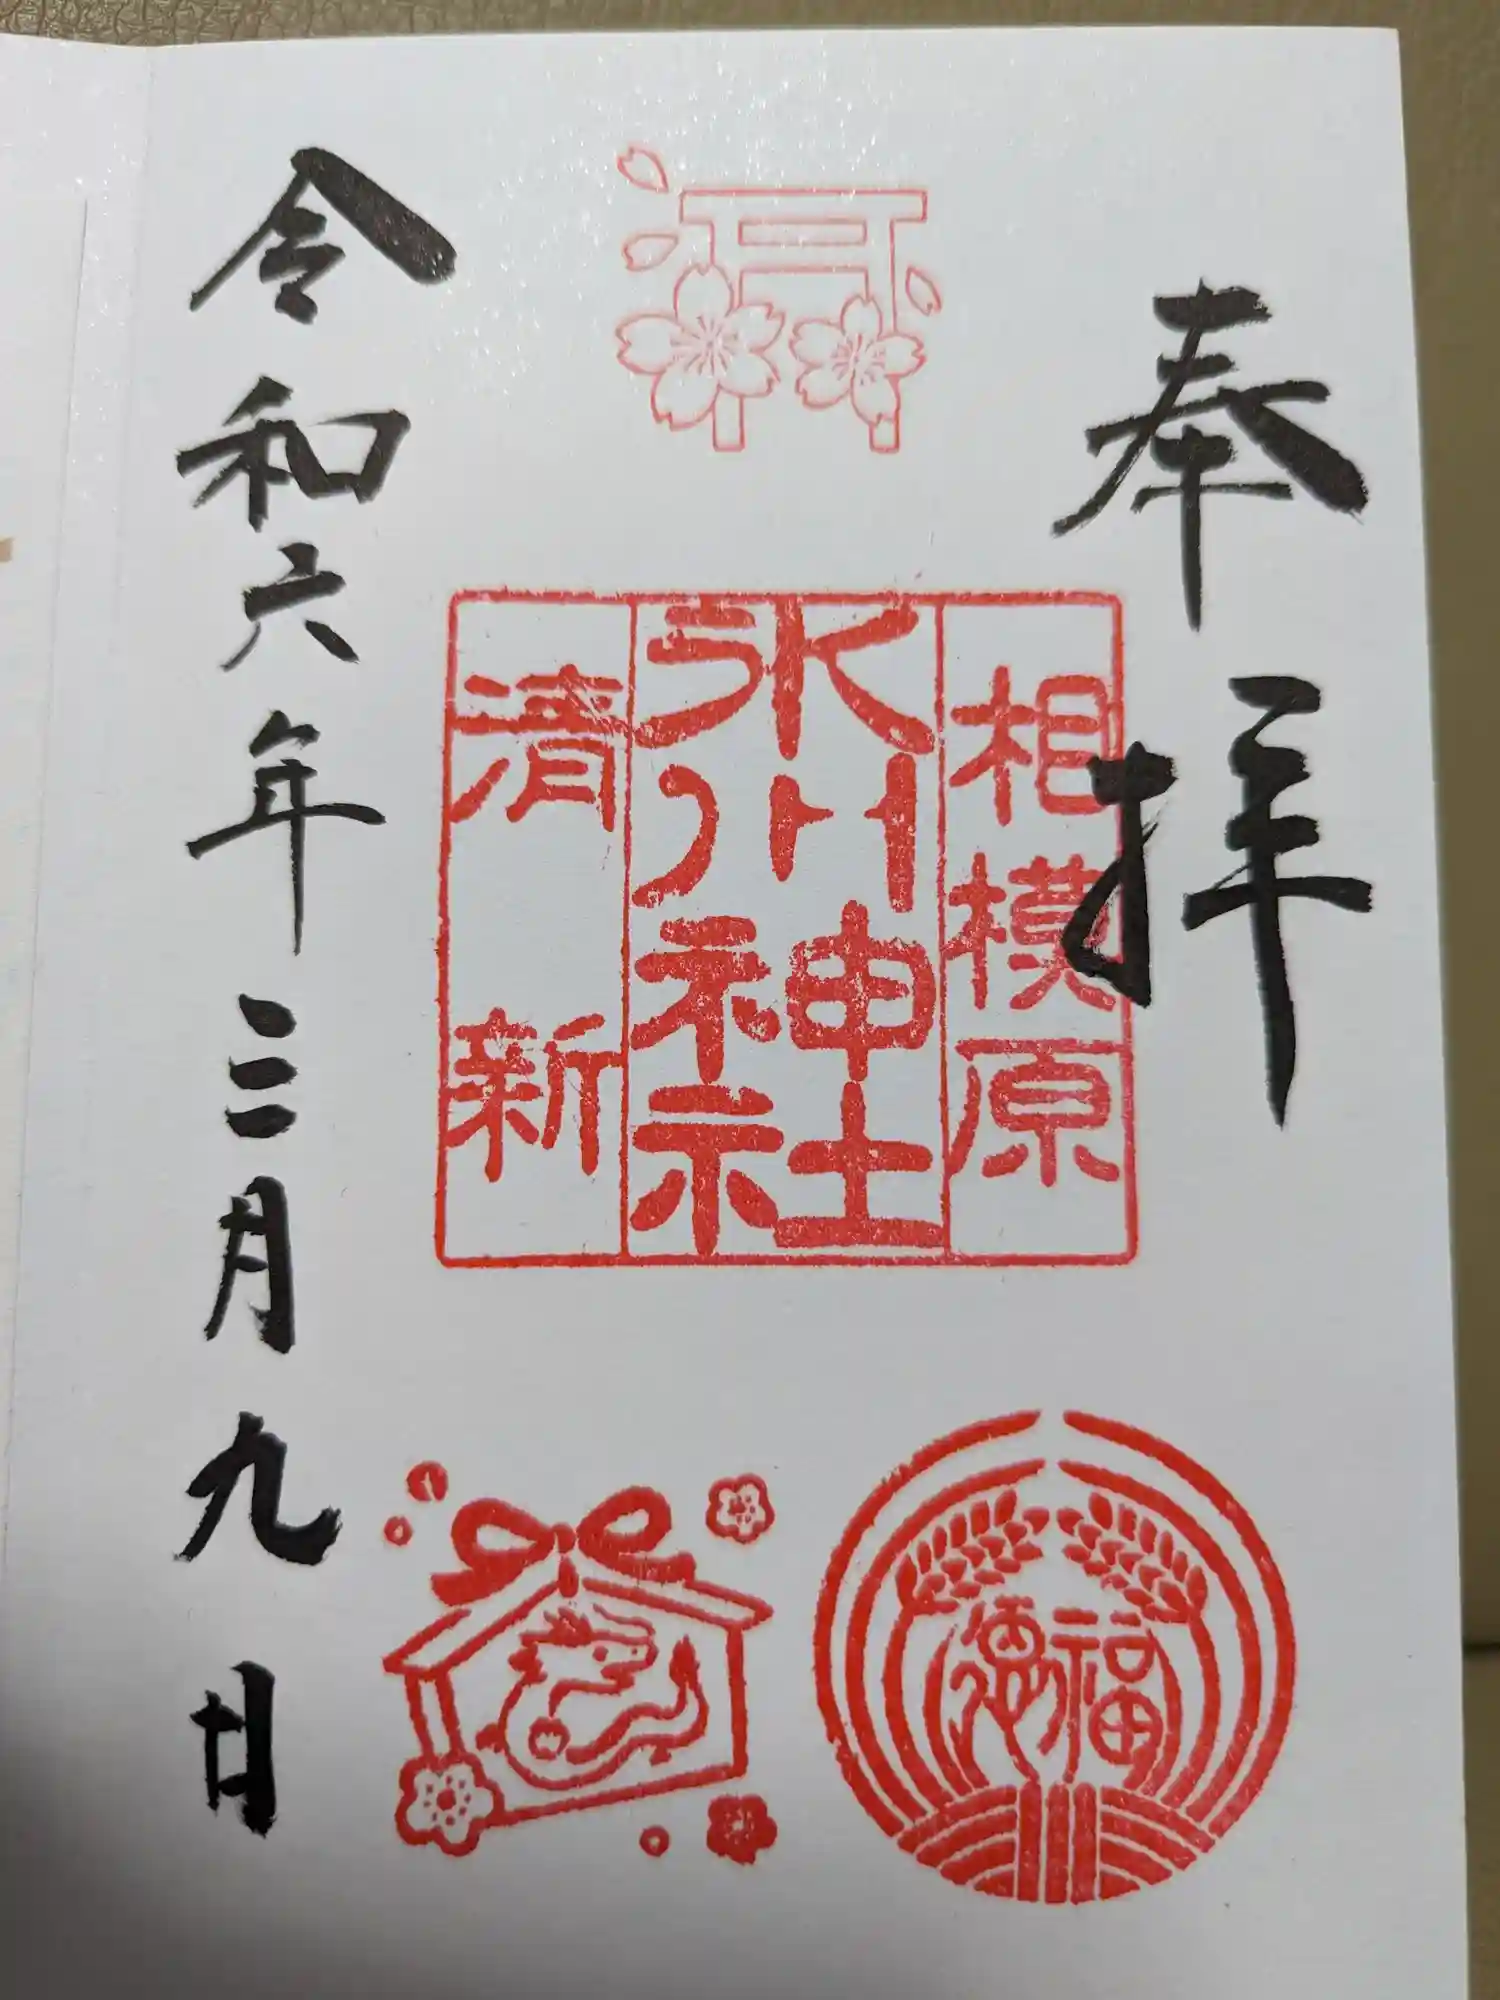 奉拝
相模原
氷川神社
清新
令和六年三月九日
福徳